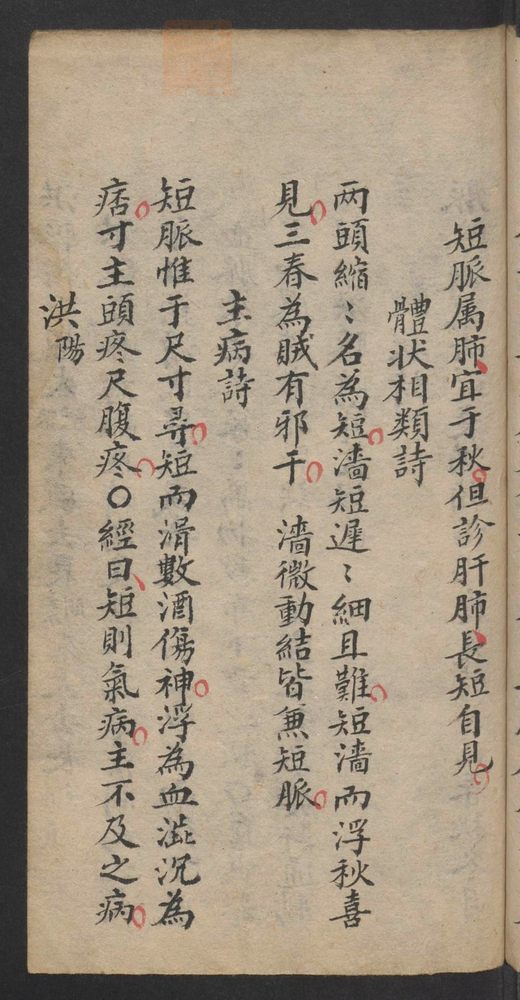 短脈属肺宜于秋但診肝肺長短自見
體狀相類詩
两頭縮〻名為短濇短遲〻細且難短濇而浮秋喜
見三春為賊有邪干　濇微動結皆兼短脈
主病詩
短脈惟于尺寸尋短而滑數酒傷神浮為血澁沉為
痞寸主頭疼尺腹疼〇經曰短則氣病主不及之病
洪陽